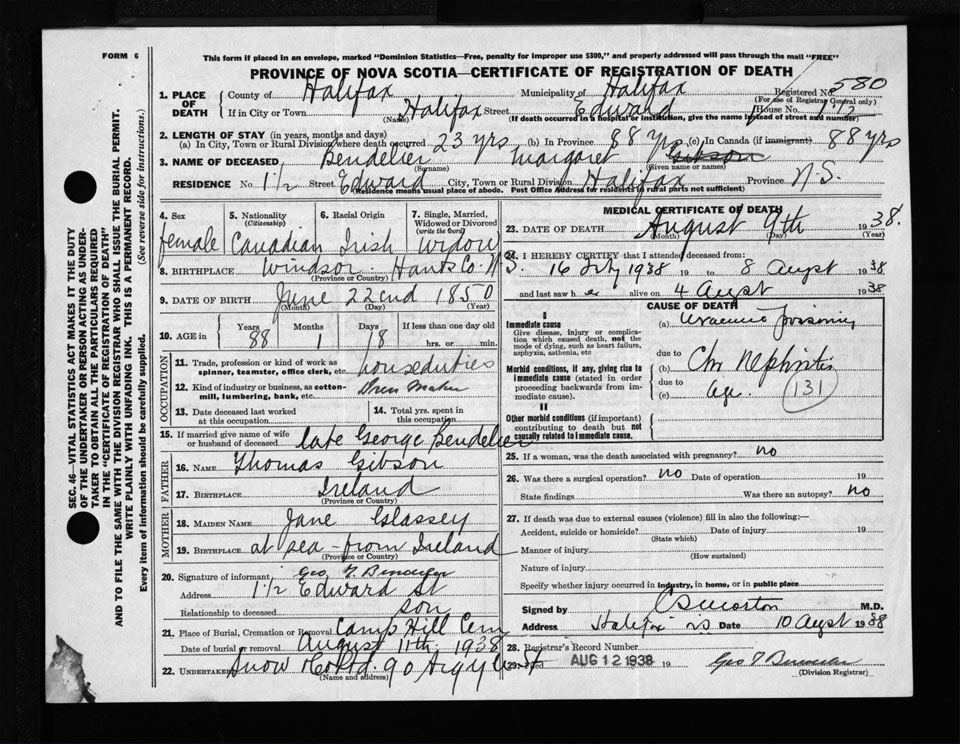 FORM 6
This form if placed in an envelope, marked "Dominion Statistics—Free, penalty for improper use $300," and properly addressed will pass through the mail "FREE"
PROVINCE OF NOVA SCOTIA—CERTIFICATE OF REGISTRATION OF DEATH
1. PLACE OF DEATH
County of Halifax Municipality of Halifax Registered No. 580
(For use of Registrar General only)
If in City or Town Halifax Street Edward House No. 1 1/2
(Name) (If death occurred in a hospital or institution, give the name instead of street and number)
2. LENGTH OF STAY (in years, months and days)
(a) In City, Town or Rural Division where death occurred 23 yrs (b) In Province 88 yrs (c) In Canada (if immigrant) 88 yrs
3. NAME OF DECEASED Bendelier Margaret Gibson
(Surname) (Given name or names)
RESIDENCE No. 1 1/2 Street Edward City, Town or Rural Division Halifax Province N.S.
(Residence means usual place of abode. Post Office Address for residents in rural parts not sufficient)
4. Sex female
5. Nationality (Citizenship) Canadian
6. Racial Origin Irish
7. Single, Married, Widowed or Divorced (write the word) Widow
8. BIRTHPLACE Windsor Hants Co. N.S.
(Province or Country)
9. DATE OF BIRTH June 22nd 1850
(Month) (Day) (Year)
10. AGE in Years 88 Months 1 Days 18 If less than one day hrs. or min.
OCCUPATION
11. Trade, profession or kind of work as spinner, teamster, office clerk, etc. house duties
12. Kind of industry or business, as cotton-mill, lumbering, bank, etc. Dress Maker
13. Date deceased last worked at this occupation
14. Total yrs. spent in this occupation
15. If married give name of wife or husband of deceased late George Bendelier
FATHER
16. NAME Thomas Gibson
17. BIRTHPLACE Ireland
(Province or Country)
MOTHER
18. MAIDEN NAME Jane Glassey
19. BIRTHPLACE at sea - from Ireland
(Province or Country)
20. Signature of informant Geo
Address 1 1/2 Edward St
Relationship to deceased son
21. Place of Burial, Cremation or Removal Camp Hill Cem
Date of burial or removal August 11th, 1938
22. UNDERTAKER Snow & Co Ltd. 90 Argyle St
(Name and address)
MEDICAL CERTIFICATE OF DEATH
23. DATE OF DEATH August 9th 1938.
(Month) (Day) (Year)
24. I HEREBY CERTIFY that I attended deceased from:
16 July 1938 19 to 8 August 1938
and last saw her alive on 4 August 1938
CAUSE OF DEATH
I
Immediate cause
Give disease, injury or complication which caused death, not the mode of dying, such as heart failure, asphyxia, asthenia, etc
(a) Uraemic
due to
(b) Chr Nephritis
Morbid conditions, if any, giving rise to immediate cause (stated in order proceeding backwards from immediate cause).
due to
(c) age. 131
II
Other morbid conditions (if important) contributing to death but not causally related to immediate cause.
25. If a woman, was the death associated with pregnancy? no
26. Was there a surgical operation? no Date of operation 19
State findings Was there an autopsy? no
27. If death was due to external causes (violence) fill in also the following:—
Accident, suicide or homicide? Date of injury 19
(State which)
Manner of injury
(How sustained)
Nature of injury
Specify whether injury occurred in industry, in home, or in public place
Signed by C S Morton M.D.
Address Halifax NS Date 10 August 1938
28. Registrar's Record Number
29. Filed AUG 12 1938 19
(Division Registrar)
SEC. 46—VITAL STATISTICS ACT MAKES IT THE DUTY
OF THE UNDERTAKER OR PERSON ACTING AS UNDER-
TAKER TO OBTAIN ALL THE PARTICULARS REQUIRED
IN THE "CERTIFICATE OF REGISTRATION OF DEATH"
AND TO FILE THE SAME WITH THE DIVISION REGISTRAR WHO SHALL ISSUE THE BURIAL PERMIT.
WRITE PLAINLY WITH UNFADING INK. THIS IS A PERMANENT RECORD.
Every item of information should be carefully supplied. (See reverse side for instructions.)